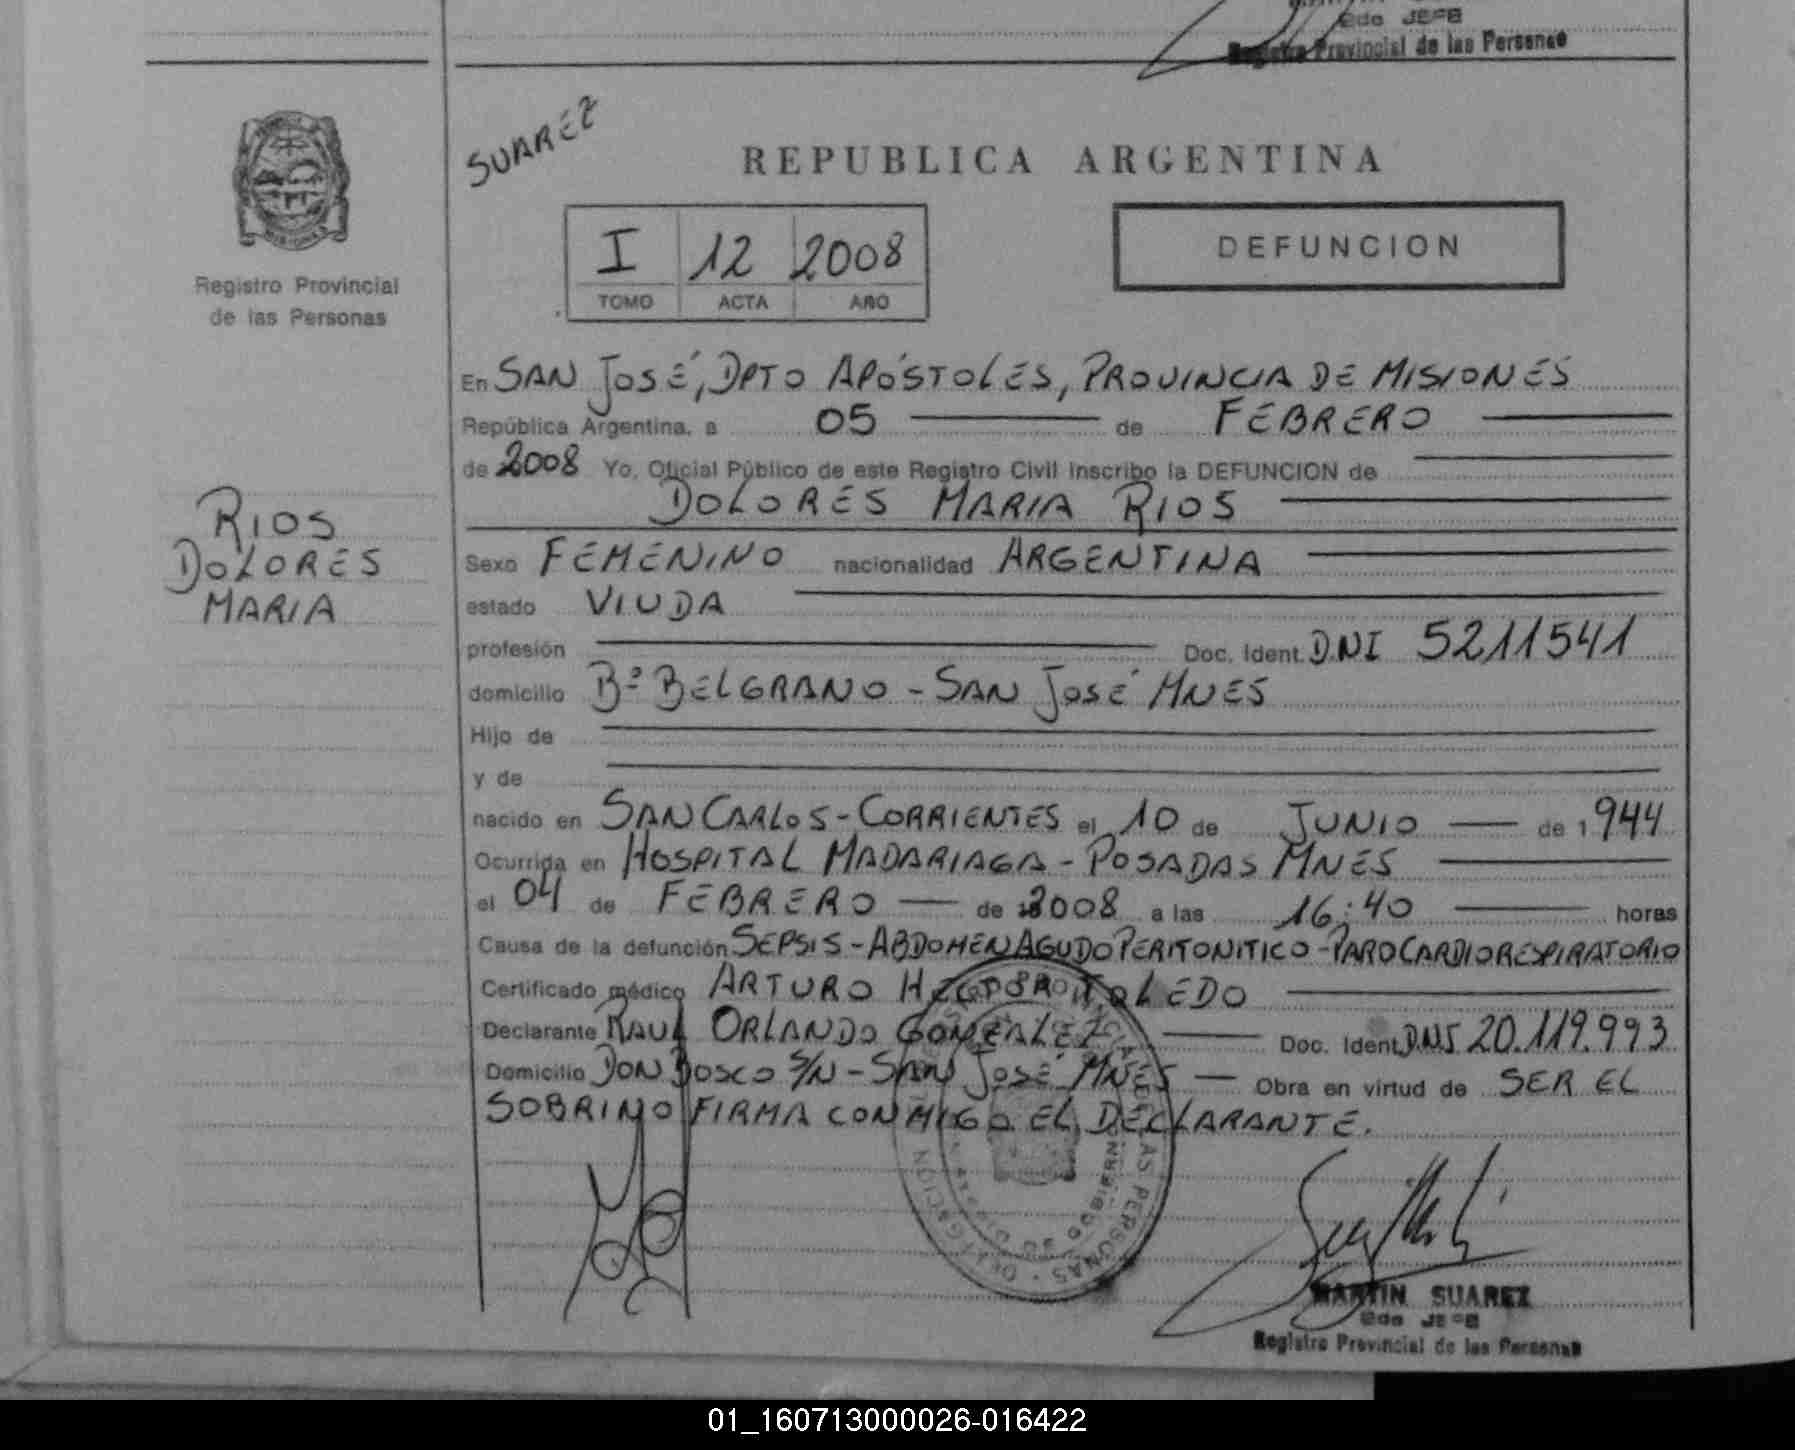 2do JEFE
Registro Provincial de las Personas
SUAREZ
REPUBLICA ARGENTINA
I 12 2008
TOMO ACTA AÑO
DEFUNCION
MISIONES
Registro Provincial
de las Personas
En SAN JOSÉ, DPTO APÓSTOLES, PROVINCIA DE MISIONES
República Argentina, a 05 de FEBRERO
de 2008 Yo, Oficial Público de este Registro Civil inscribo la DEFUNCION de
DOLORES MARIA RIOS
RIOS
DOLORES
MARIA
Sexo FEMENINO nacionalidad ARGENTINA
estado VIUDA
profesión Doc. Ident. DNI 5211541
domicilio Bº BELGRANO - SAN JOSÉ MNES
Hijo de
y de
nacido en SAN CARLOS - CORRIENTES el 10 de JUNIO de 1944
Ocurrida en HOSPITAL MADARIAGA - POSADAS MNES
el 04 de FEBRERO de 2008 a las 16:40 horas
Causa de la defunción SEPSIS - ABDOMEN AGUDO PERITONITICO - PARO CARDIORESPIRATORIO
Certificado médico ARTURO HECTOR TOLEDO
Declarante RAUL ORLANDO GONZALEZ Doc. Ident. DNI 20.119.993
Domicilio DON BOSCO S/N - SAN JOSÉ MNES Obra en virtud de SER EL
SOBRINO FIRMA CONMIGO EL DECLARANTE.
MARTIN SUAREZ
2do JEFE
Registro Provincial de las Personas
01_160713000026-016422